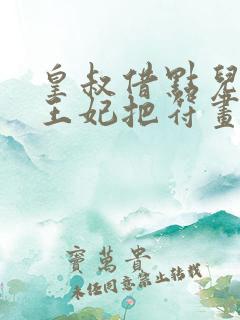 皇叔借點兒
王妃把符畫
寶萬貴
未經同意禁止轉載